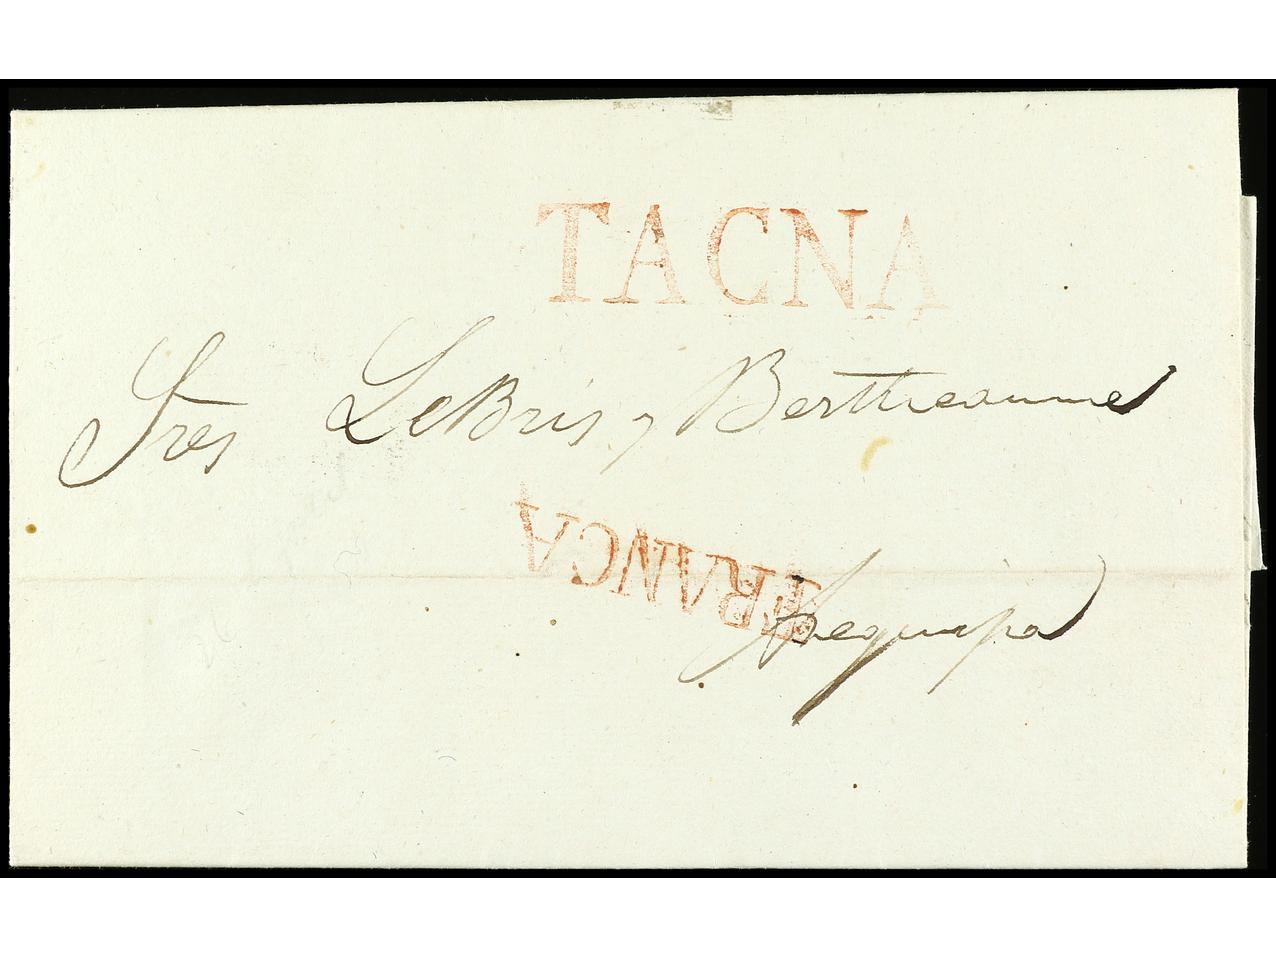 TACNA
Sres LeBris y Bertheaume
FRANCA
Arequipa